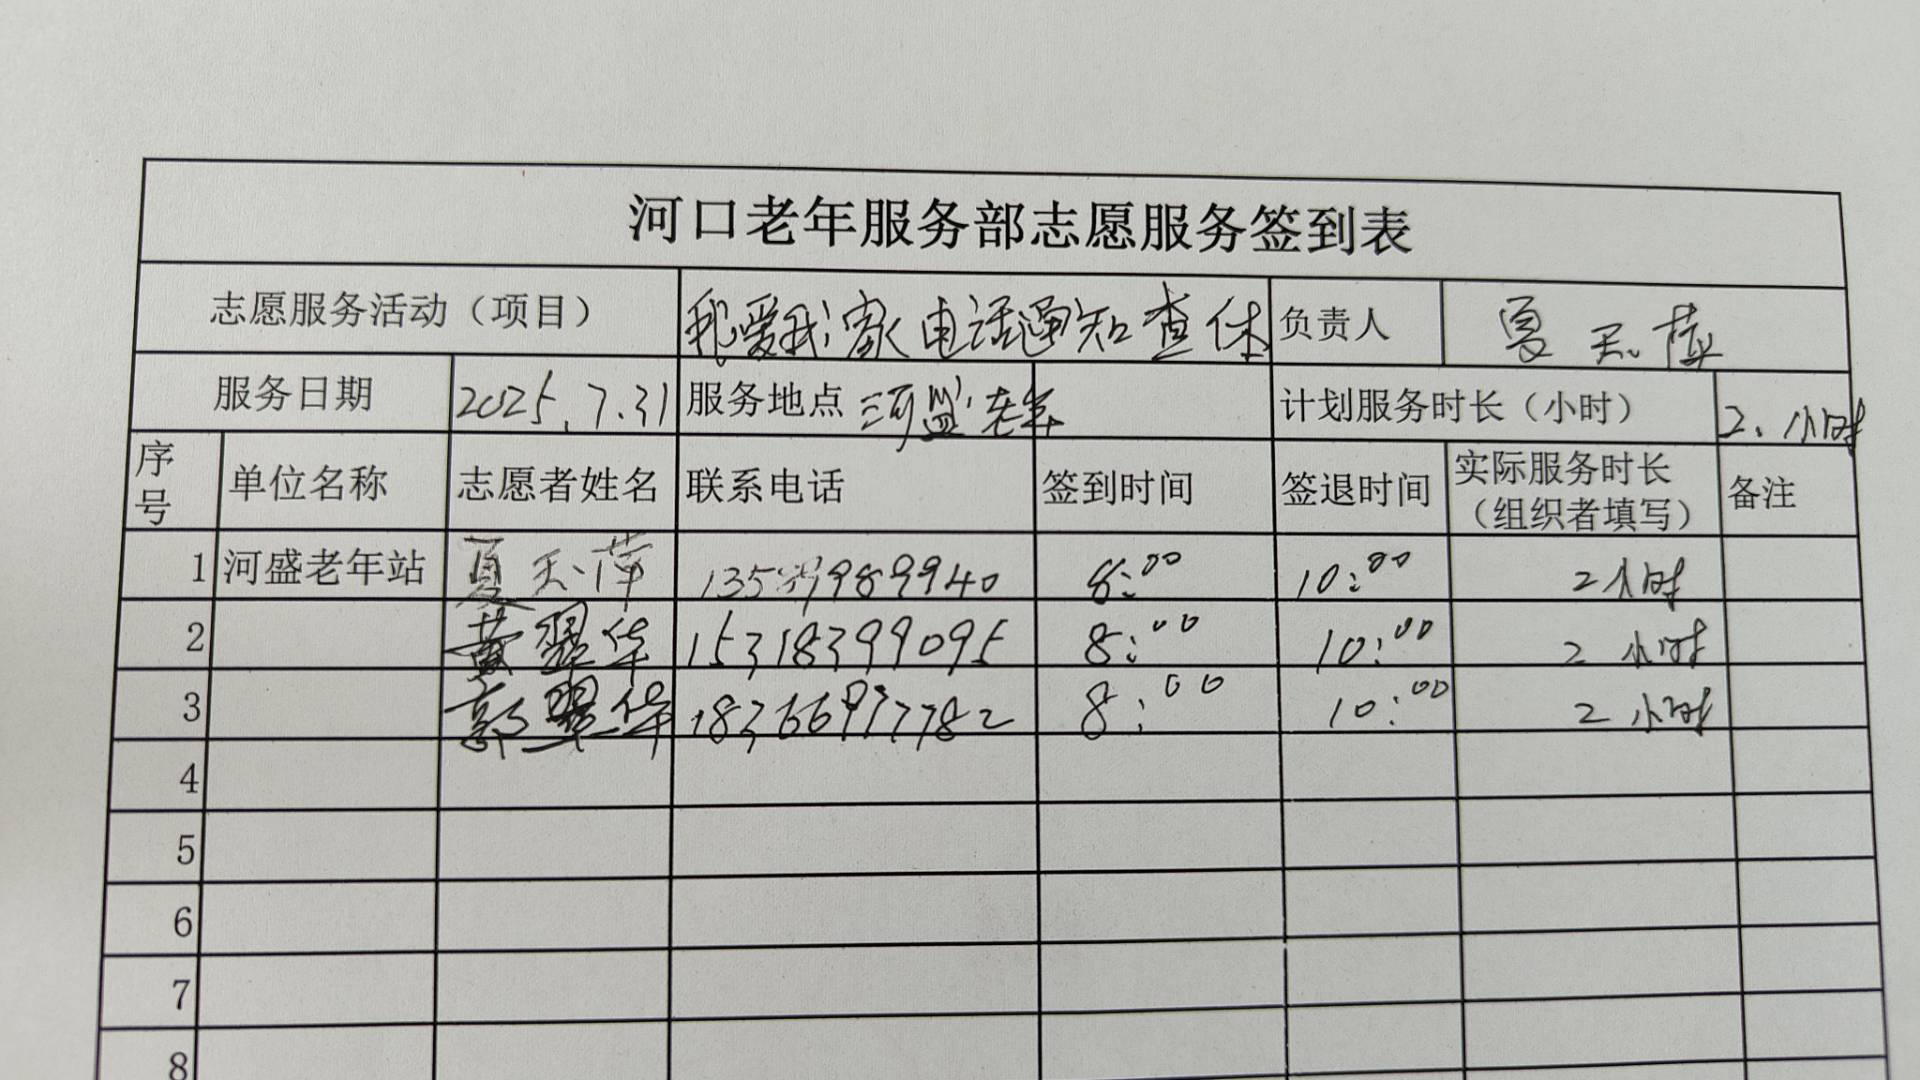 河口老年服务部志愿服务签到表
志愿服务活动（项目） 我爱我家电话通知查体 负责人 夏天萍
服务日期 2025.7.31 服务地点 河盛老年 计划服务时长（小时） 2.小时
序号 单位名称 志愿者姓名 联系电话 签到时间 签退时间 实际服务时长（组织者填写） 备注
1 河盛老年站 夏天萍 8:00 10:00 2小时
2 黄翠华 15318399095 8:00 10:00 2小时
3 郭翠华 8:00 10:00 2小时
4
5
6
7
8